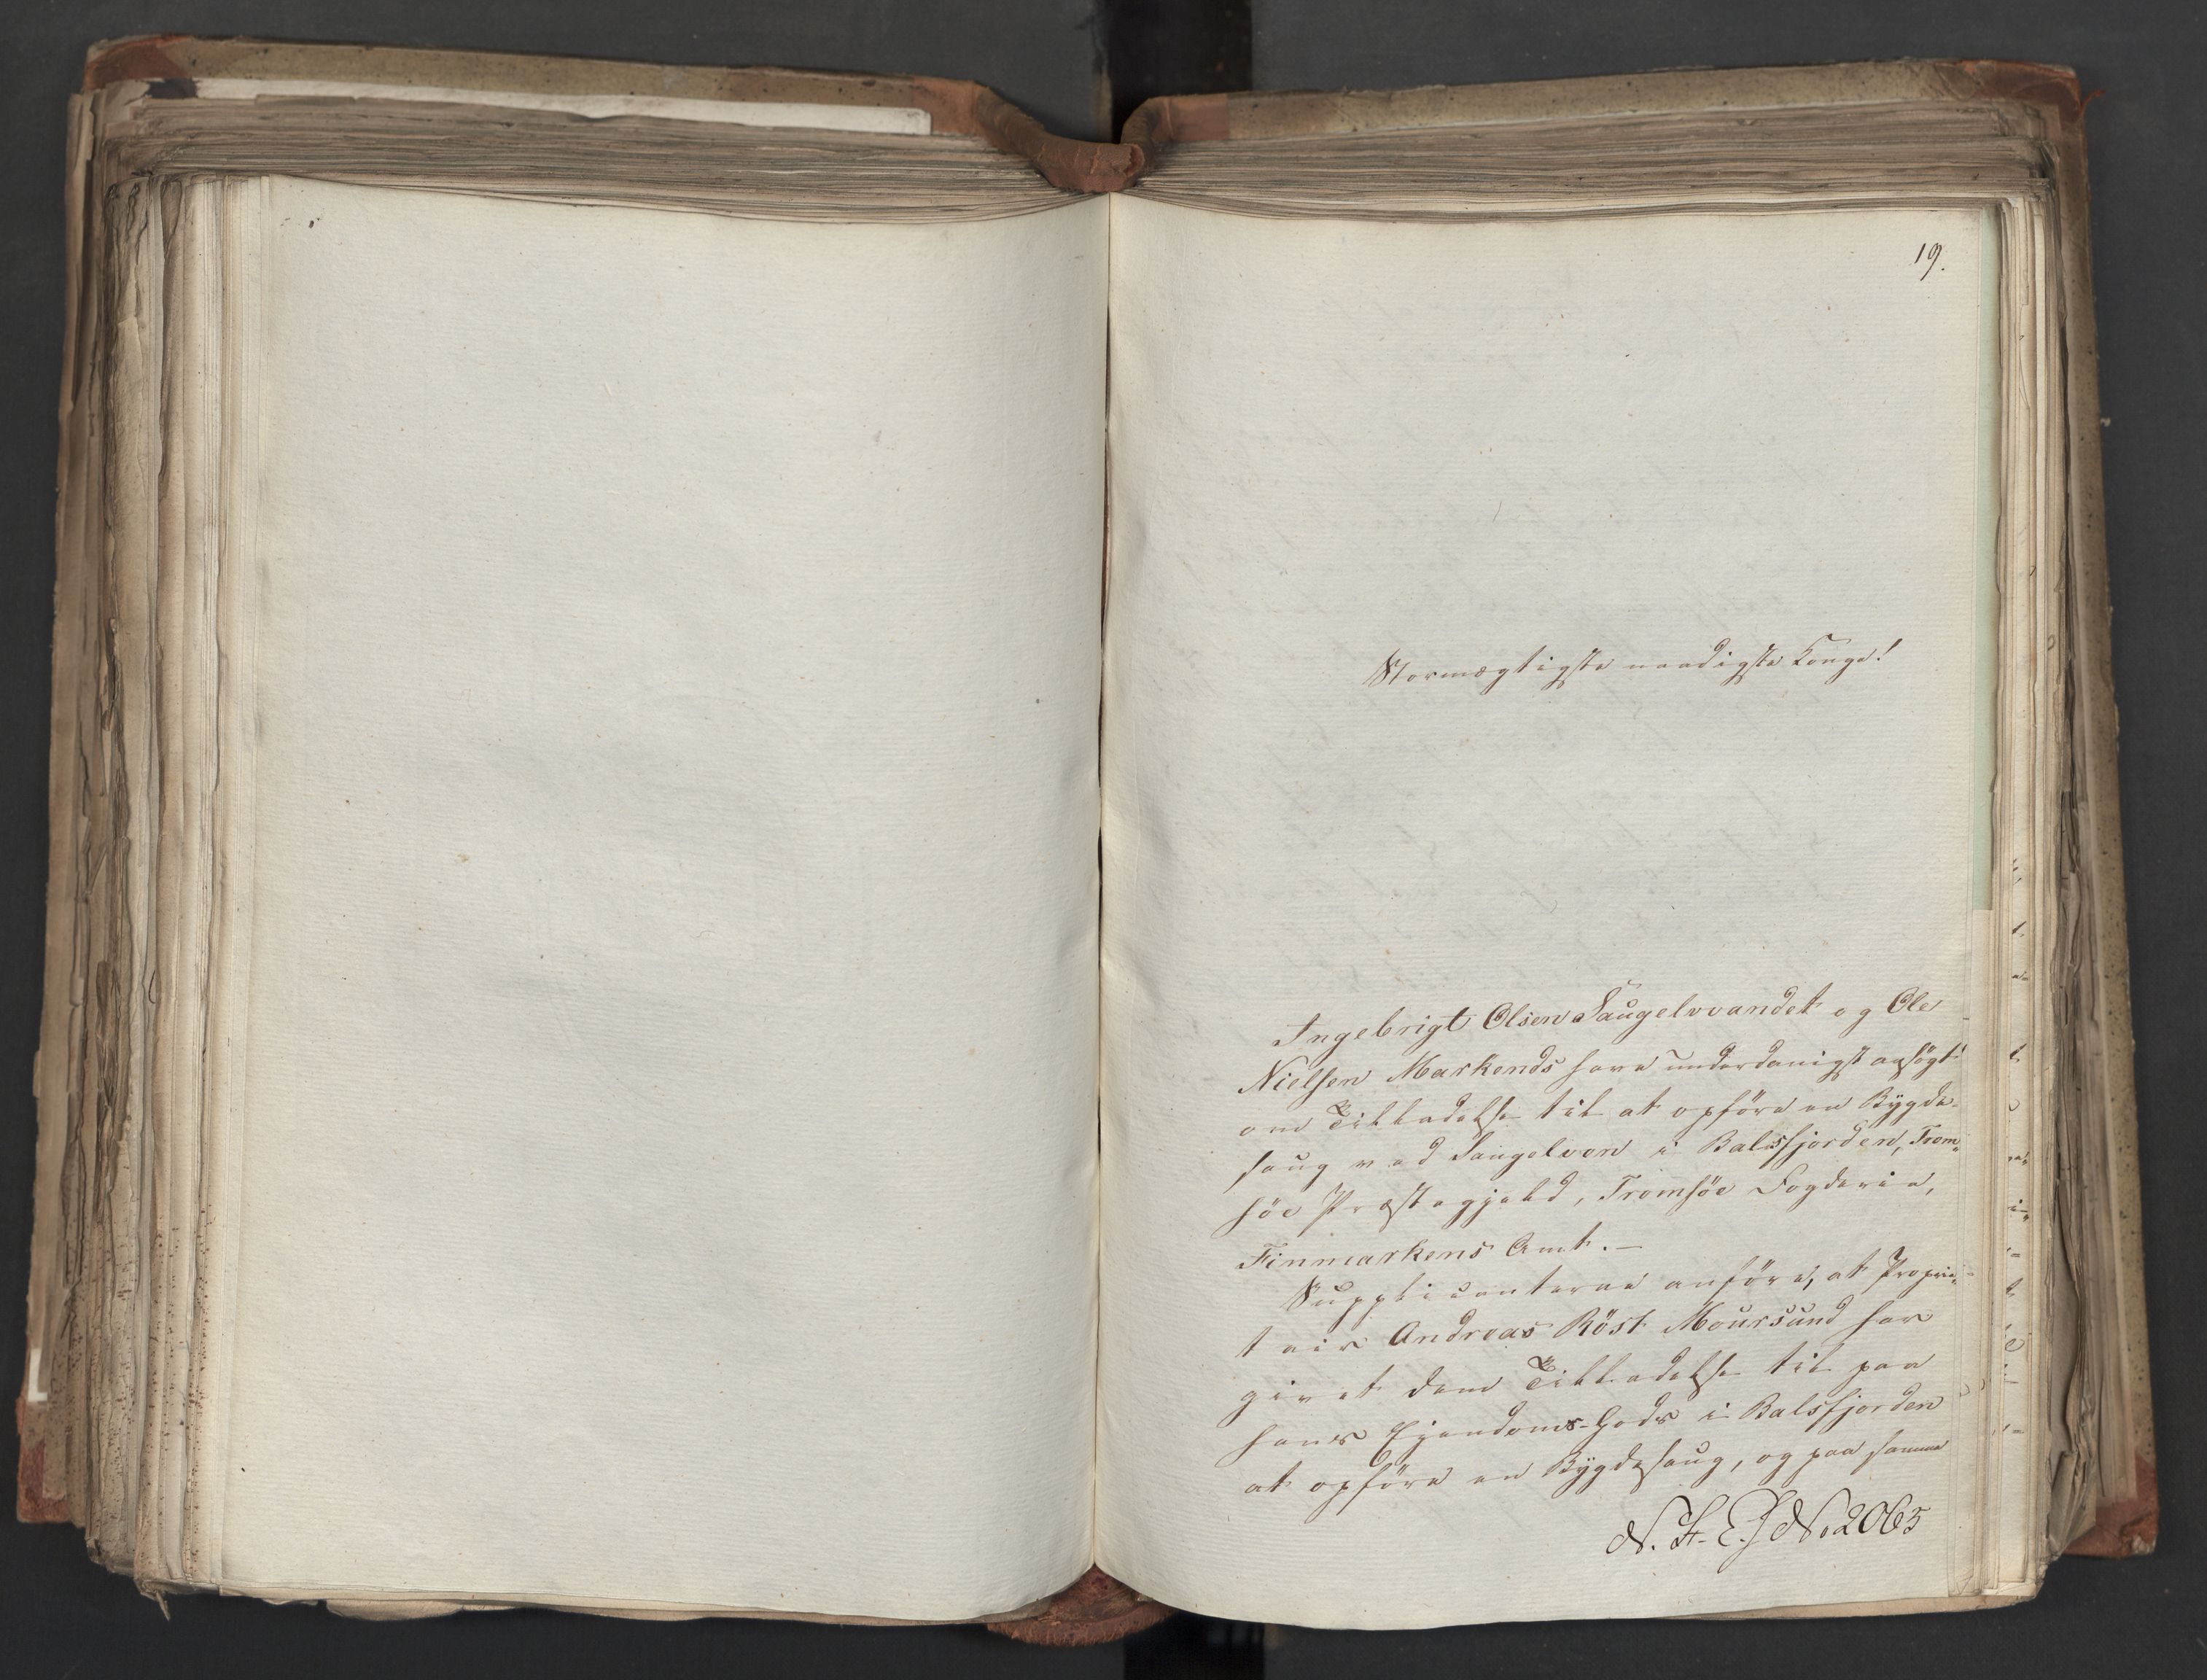 19.
Stormægtigste naadigste Konge!
Ingebrigt Olsen Saugelvvandet og Ole
Nielsen Markends have underdanigst ansögt
om Tilladelse til at opföre en Bygde-
saug ved Saugelven i Balsfjorden, Trom-
söe Præstegjeld, Tromsöe Fogderie,
Finmarkens Amt. —
Supplicanterne anföre, at Proprie-
tair Andreas Röst Moursund har
givet dem Tilladelse til paa
hans Ejendoms-Gods i Balsfjorden
at opföre en Bygdesaug, og paa samme
N. H. E. J No 2063